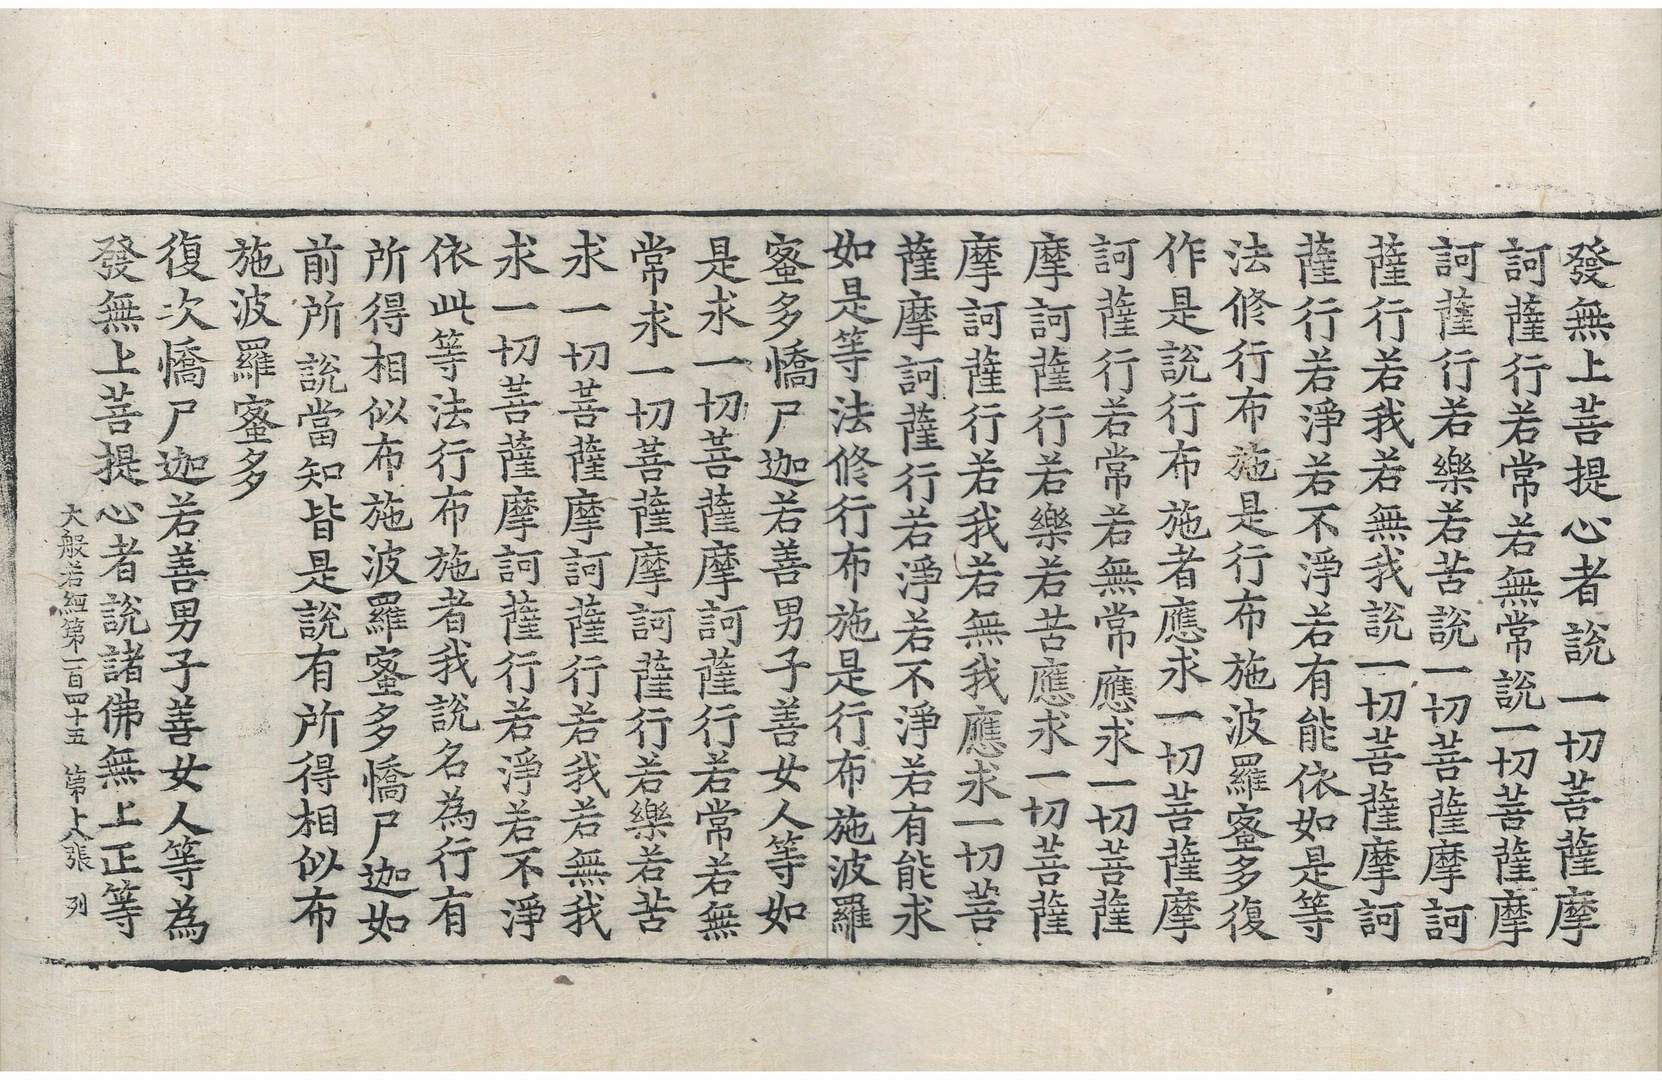 發無上菩提心者說一切菩薩摩
訶薩行若常若無常說一切菩薩摩
訶薩行若樂若苦說一切菩薩摩訶
薩行若我若無我說一切菩薩摩訶
薩行若淨若不淨若有能依如是等
法修行布施是行布施波羅蜜多復
作是說行布施者應求一切菩薩摩
訶薩行若常若無常應求一切菩薩
摩訶薩行若樂若苦應求一切菩薩
摩訶薩行若我若無我應求一切菩
薩摩訶薩行若淨若不淨若有能求
如是等法修行布施是行布施波羅
蜜多憍尸迦若善男子善女人等如
是求一切菩薩摩訶薩行若常若無
常求一切菩薩摩訶薩行若樂若苦
求一切菩薩摩訶薩行若我若無我
求一切菩薩摩訶薩行若淨若不淨
依此等法行布施者我說名為行有
所得相似布施波羅蜜多憍尸迦如
前所說當知皆是說有所得相似布
施波羅蜜多
復次憍尸迦若善男子善女人等為
發無上菩提心者說諸佛無上正等
大般若經第一百四十五 第十八張 列